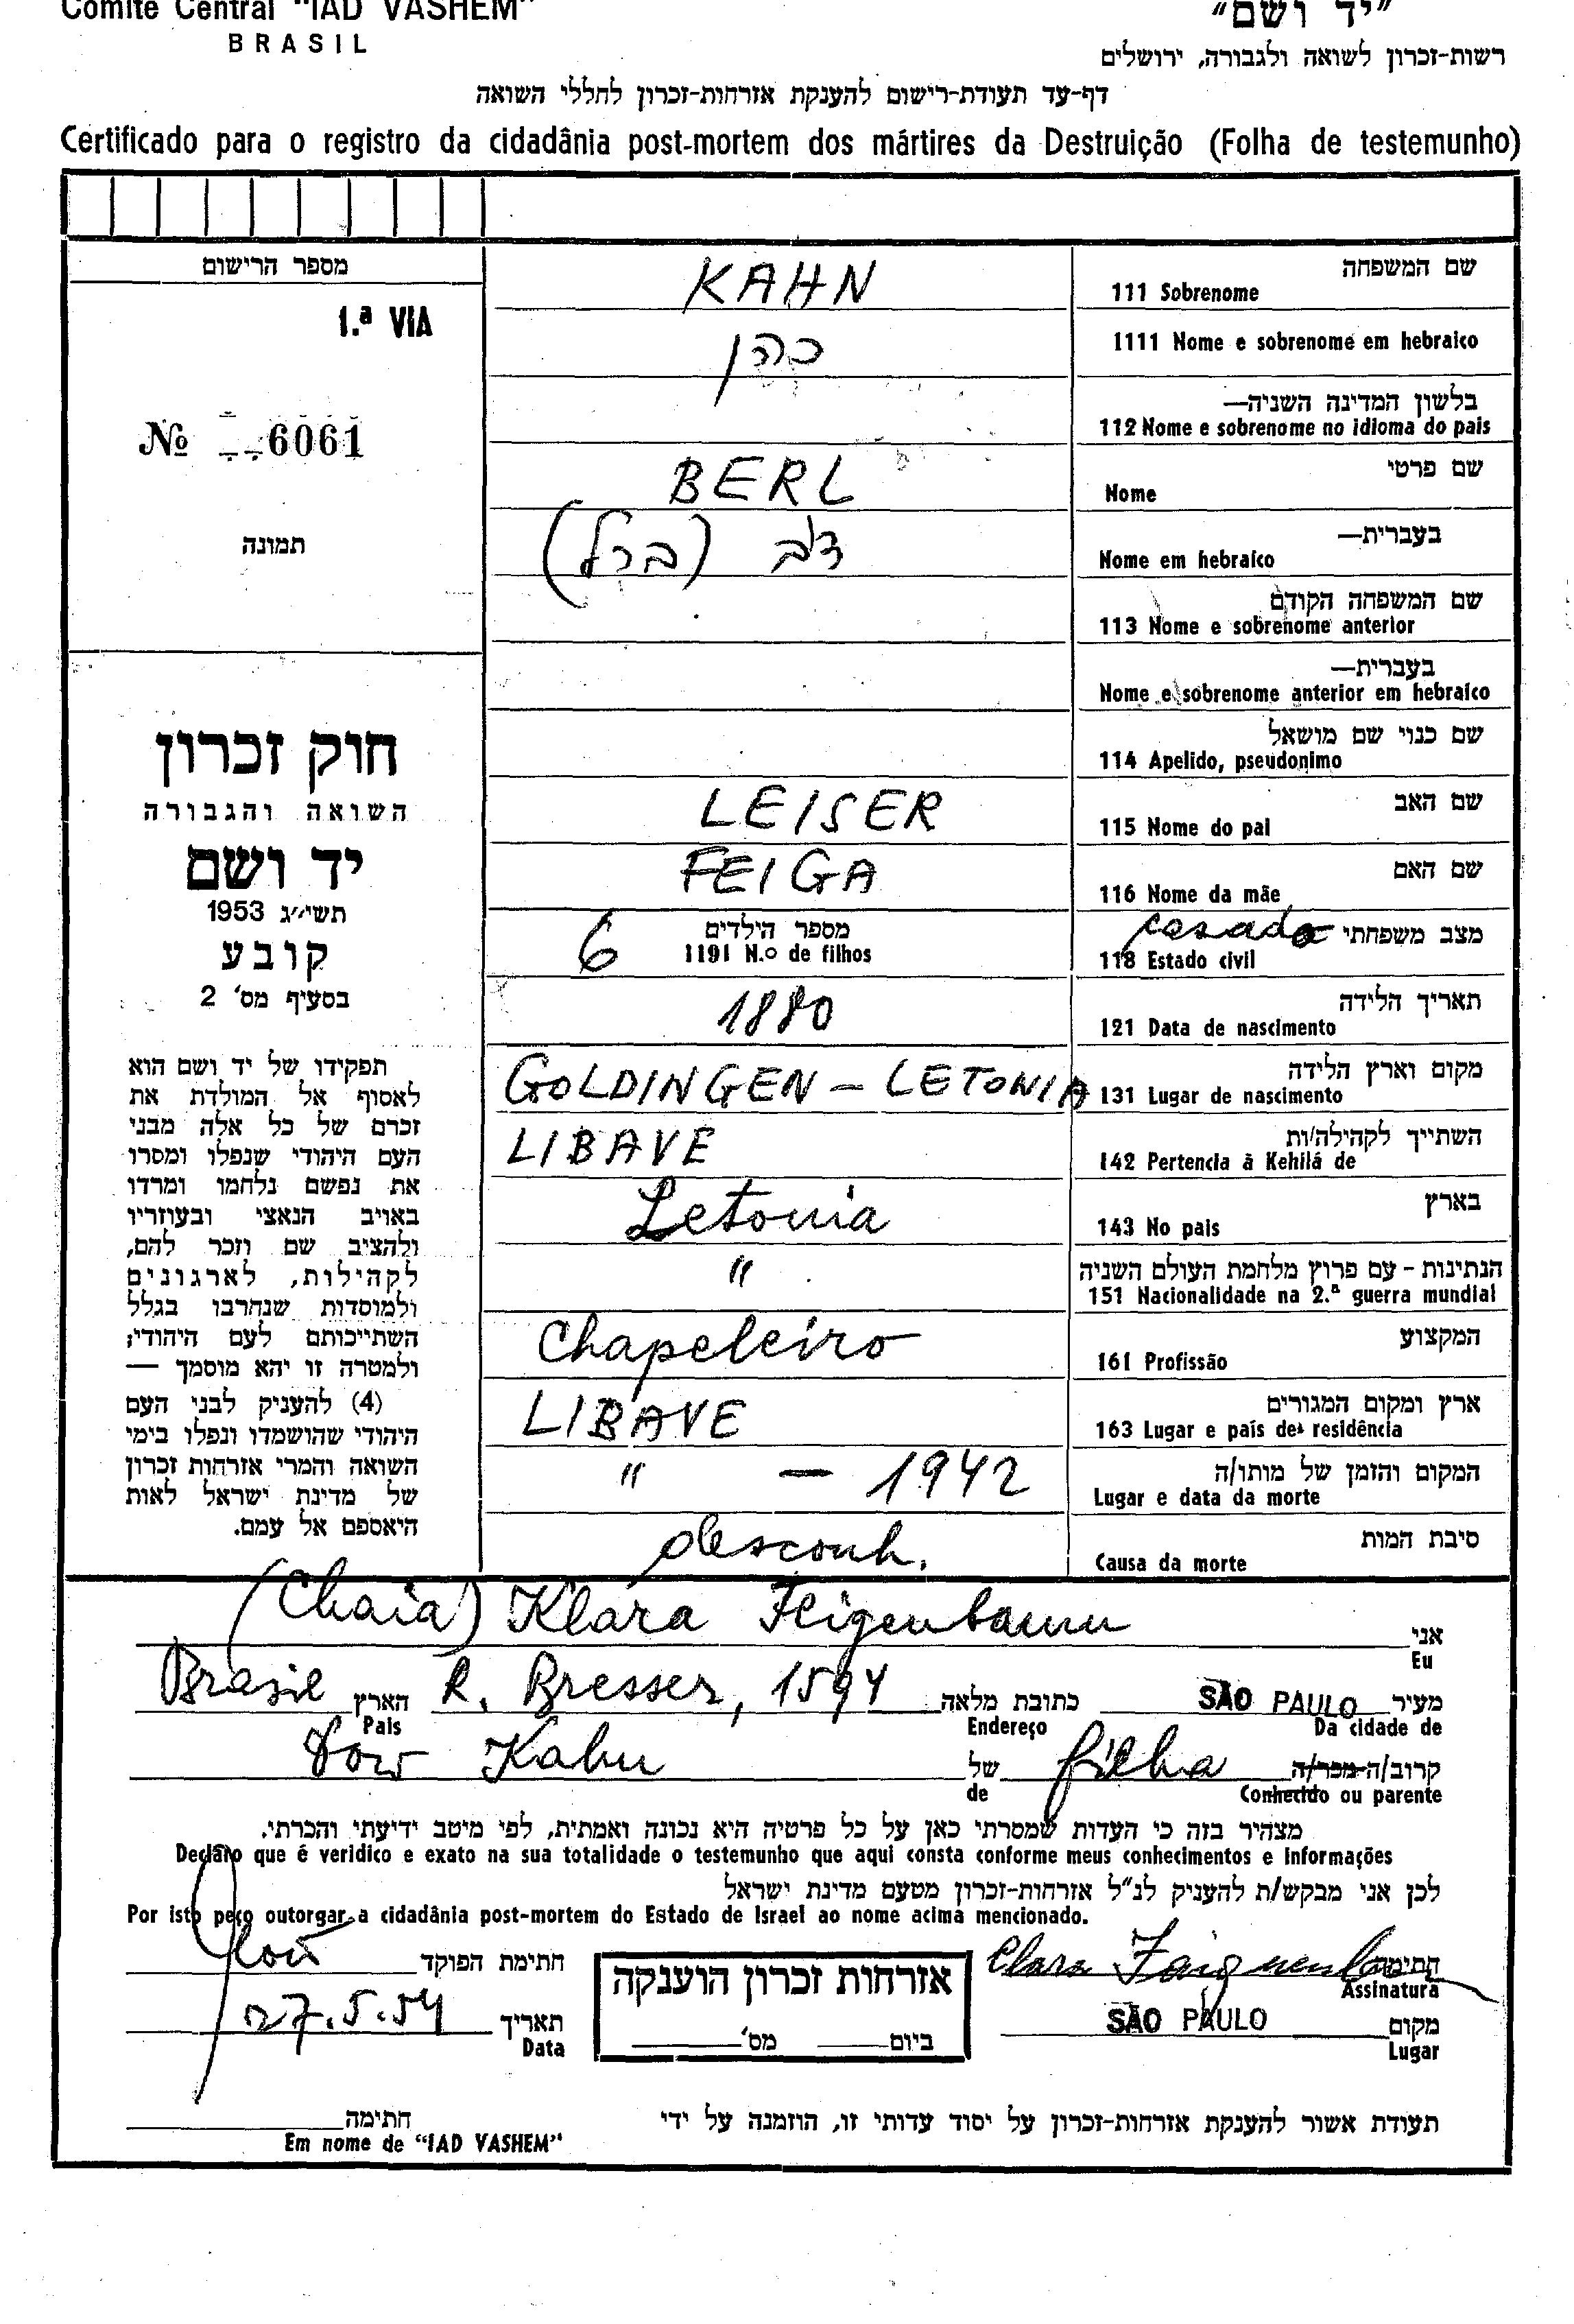 Comité Central "IAD VASHEM"
BRASIL
"יד ושם"
רשות-זכרון לשואה ולגבורה, ירושלים
דף-עד תעודת-רישום להענקת אזרחות-זכרון לחללי השואה
Certificado para o registro da cidadânia post-mortem dos mártires da Destruição (Folha de testemunho)
מספר הרישום
1.ª VIA
№ 6061
תמונה
חוק זכרון
השואה והגבורה
יד ושם
תשי״ג 1953
קובע
בסעיף מס' 2
תפקידו של יד ושם הוא
לאסוף אל המולדת את
זכרם של כל אלה מבני
העם היהודי שנפלו ומסרו
את נפשם נלחמו ומרדו
באויב הנאצי ובעוזריו
ולהציב שם וזכר להם,
לקהילות, לארגונים
ולמוסדות שנחרבו בגלל
השתייכותם לעם היהודי;
ולמטרה זו יהא מוסמך —
(4) להעניק לבני העם
היהודי שהושמדו ונפלו בימי
השואה והמרי אזרחות זכרון
של מדינת ישראל לאות
היאספם אל עמם.
שם המשפחה
111 Sobrenome KAHN
1111 Nome e sobrenome em hebraico כהן
בלשון המדינה השניה—
112 Nome e sobrenome no idioma do pais
שם פרטי
Nome BERL
בעברית—
Nome em hebraico דב (ברל)
שם המשפחה הקודם
113 Nome e sobrenome anterior
בעברית—
Nome e sobrenome anterior em hebraico
שם כנוי שם מושאל
114 Apelido, pseudonimo
שם האב
115 Nome do pai LEISER
שם האם
116 Nome da mãe FEIGA
מצב משפחתי casado
118 Estado civil
מספר הילדים
1191 N.º de filhos 6
תאריך הלידה
121 Data de nascimento 1880
מקום וארץ הלידה
131 Lugar de nascimento GOLDINGEN – LETONIA
השתייך לקהילה/ות
142 Pertencia à Kehilá de LIBAVE
בארץ
143 No pais Letonia
הנתינות - עם פרוץ מלחמת העולם השניה
151 Nacionalidade na 2.ª guerra mundial "
המקצוע
161 Profissão Chapeleiro
ארץ ומקום המגורים
163 Lugar e país de residência LIBAVE
המקום והזמן של מותו/ה
Lugar e data da morte " — 1942
סיבת המות
Causa da morte desconh.
אני
Eu (Chaia) Klara Feigenbaum
מעיר SÃO PAULO כתובת מלאה R. Bresser, 1594 הארץ Brasil
Da cidade de Endereço Pais
קרוב/ה מכר/ה filha של Dow Kahn
Conhecido ou parente de
מצהיר בזה כי העדות שמסרתי כאן על כל פרטיה היא נכונה ואמתית, לפי מיטב ידיעתי והכרתי.
Declaro que é veridico e exato na sua totalidade o testemunho que aqui consta conforme meus conhecimentos e informações
לכן אני מבקש/ת להעניק לנ"ל אזרחות-זכרון מטעם מדינת ישראל
Por isto peço outorgar a cidadânia post-mortem do Estado de Israel ao nome acima mencionado.
חתימה Clara
Assinatura
חתימת הפוקד
אזרחות זכרון הוענקה
ביום מס'
מקום SÃO PAULO
Lugar
תאריך 27.5.54
Data
תעודת אשור להענקת אזרחות-זכרון על יסוד עדותי זו, הוזמנה על ידי
חתימה
Em nome de "IAD VASHEM"